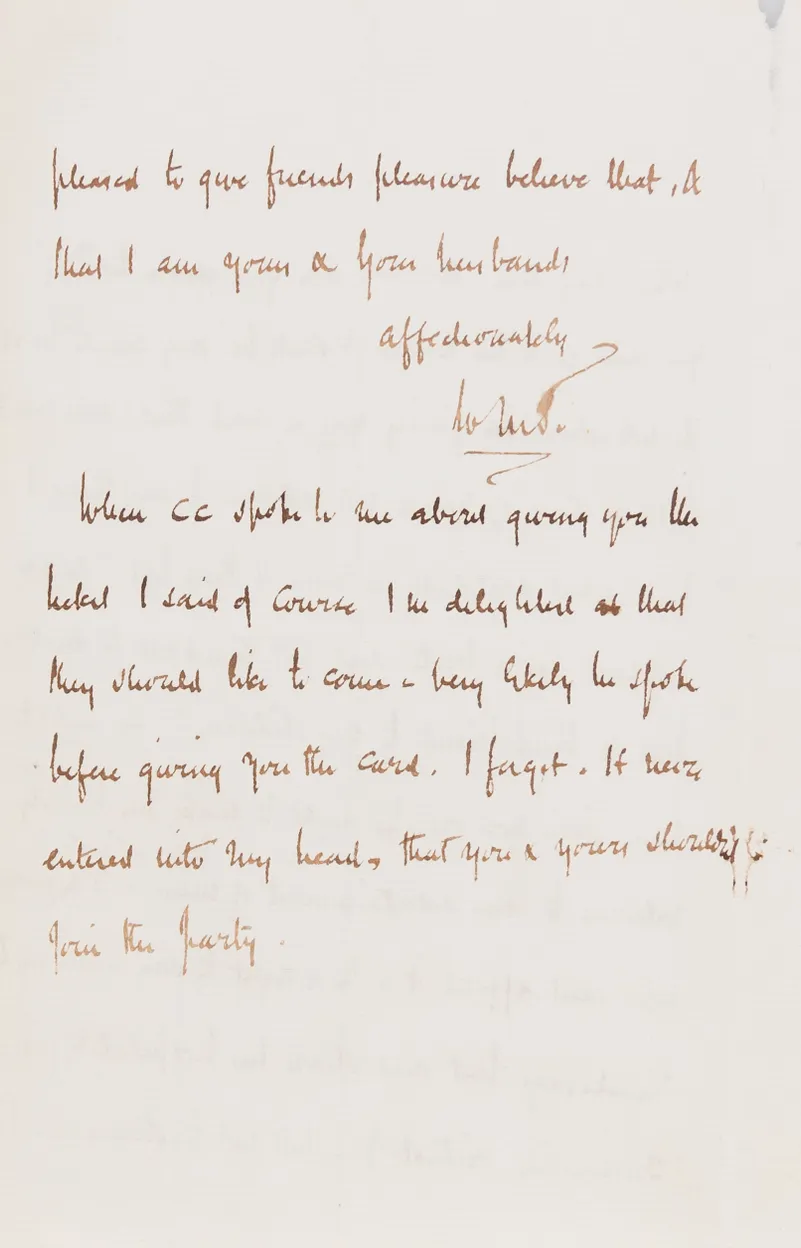 pleased to give friends pleasure believe that, &
that I am yours & your husbands
affectionately
WMT.
When CC spoke to me about giving you the
ticket I said of course I'm delighted that
they should like to come - very likely he spoke
before giving you the card. I forget. It never
entered into my head, that you & yours should
join the party.